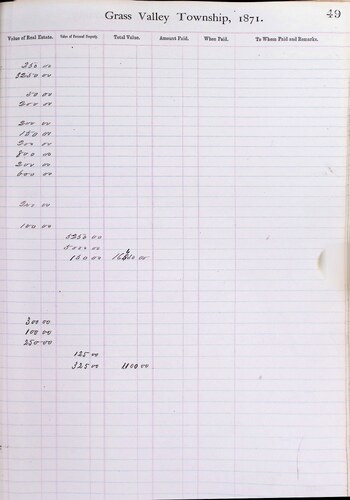 Grass Valley Township, 1871. 49
Value of Real Estate. Value of Personal Property. Total Value. Amount Paid. When Paid. To Whom Paid and Remarks.
250 00
3250 00
50 00
200 00
200 00
150 00
200 00
800 00
200 00
600 00
100 00
5250 00
5000 00
150 00
300 00
100 00
250 00
125 00
325 00 1100 00